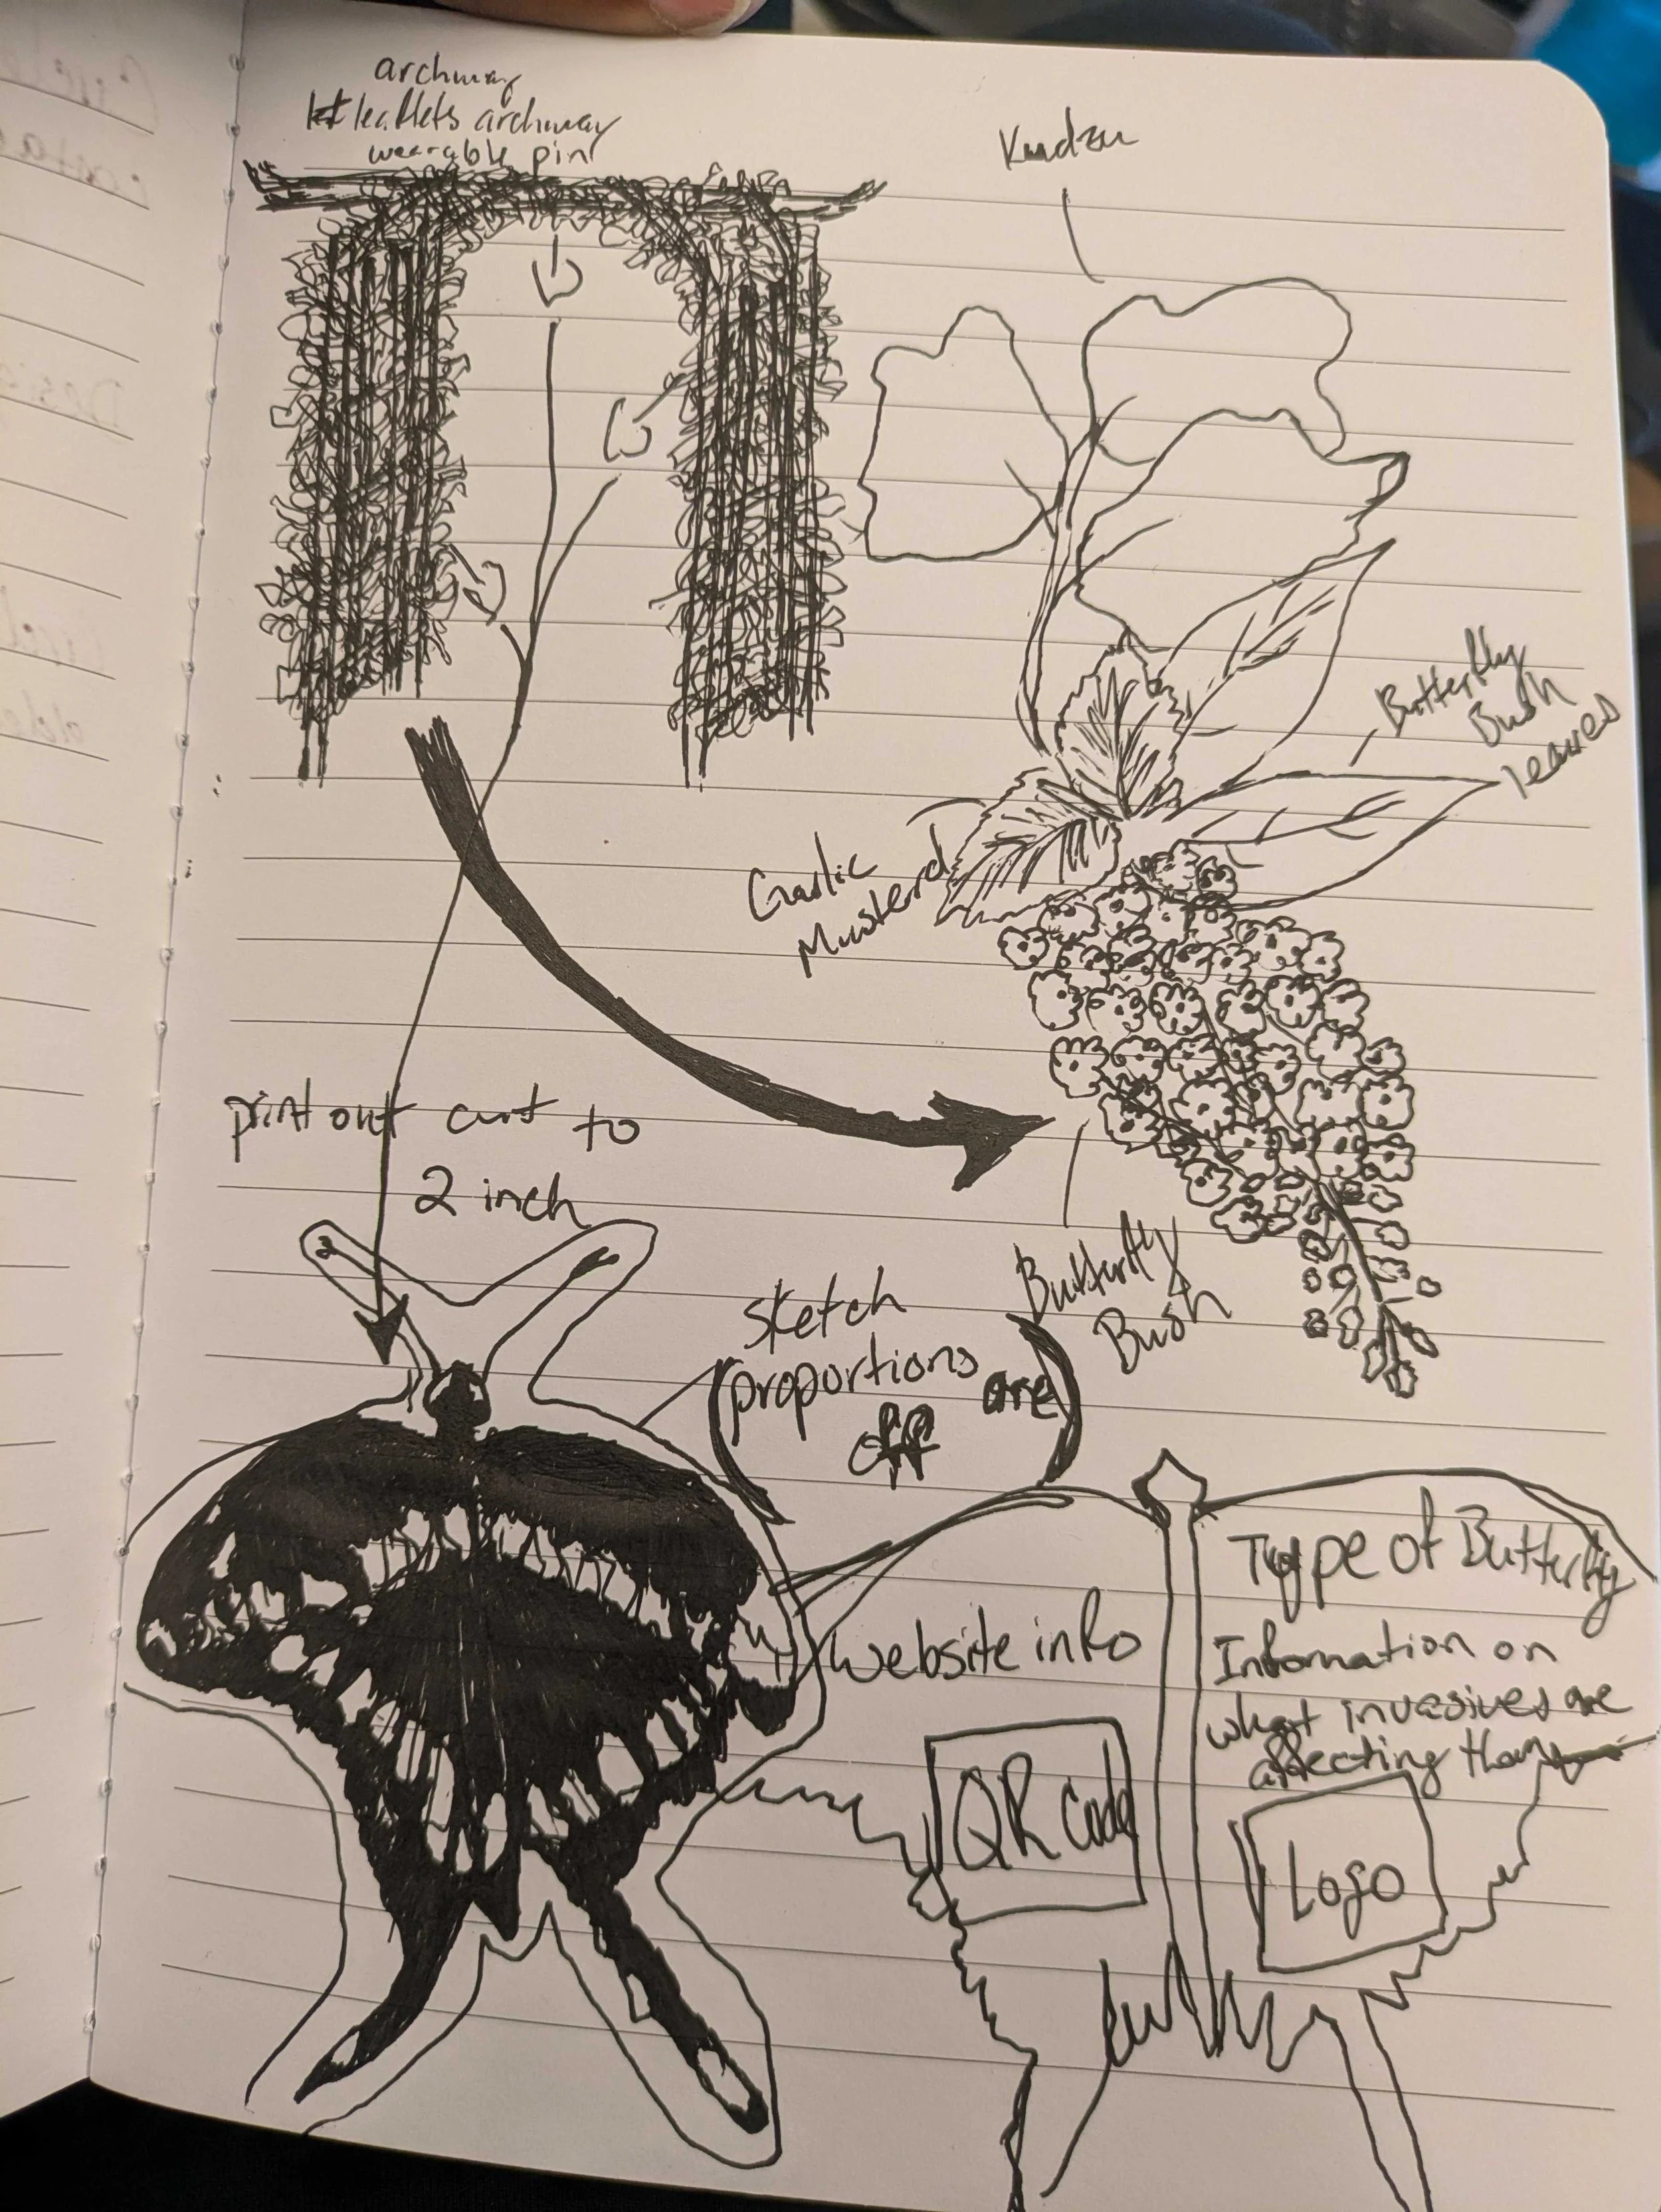 archway
leaflets archway
wearable pin
Kudzu
Butterfly
Bush
leaves
Garlic
Musterd
print out cut to
2 inch
Butterfly
Bush
sketch
proportions are
off
website info
QR Code
Type of Butterfly
Information on
what invasives are
affecting them
Logo